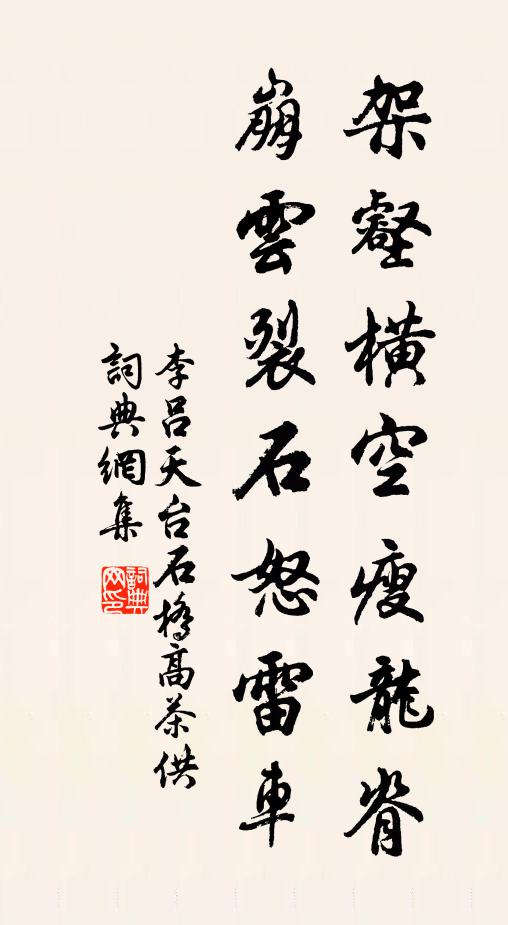 架壑橫空瘦龍脊
崩雲裂石怒雷車
李呂天台石橋高茶供
詞典網集
詞典網印